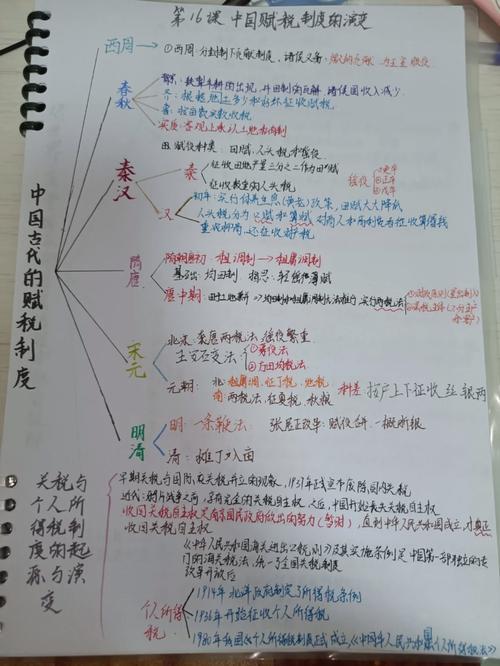 第16课 中国赋税制度的演变
中国古代的赋税制度
西周 → ①西周:分封制下贡献制度,诸侯义务:缴纳贡献 为王室服役
春秋
背景:铁犁牛耕的出现,井田制向瓦解,诸侯国收入减少。
齐:根据土地多少和好坏征收赋税
鲁:按亩数实数收税
实质:客观上承认土地私有制
秦汉
田赋役种类:田赋、人头税和徭役
秦
征收田地产量三分之二作为田赋
征收教重的人头税
徭役
①更卒
②正卒
③戍卒
汉
初年:实行休养生息(黄老)政策,田赋大大降低
人头税分为口赋和算赋 对商人和高利贷者征收算缗钱
重农抑商,还征收财产税
隋唐
隋朝唐初:租调制 → 租庸调制
基础:均田制 指思:轻徭传薄赋
唐中期:
实行两税法
宋元
北宋:秉唐两税法,徭役繁重
王安石变法:
①募役法
②方田均税法
元朝:北:租庸调,征丁税,地税
南:两税法,征夏税,秋粮
种差 按户上下征收 丝 银两
明清
明:一条鞭法: 张居正改革:赋役合併,一概折银
清:摊丁入亩
关税与个人所得税制度的起源与演变
早期关税与国际,内关税并立的现象,1931年才宣布废除国内关税
近代:鸦片战争之前,享有完全的关税自主权,之后,中国开始丧失关税自主权
收回关税自主权是南京国民政府做出的努力(暂时),直到中华人民共和国成立,才真正
收回关税自主权
《中华人民共和国海关进出口税则》及其实施条例是 中国第一部独立的专
门的海关税法,统一了全国关税制度
改革开放后
个人所得税
1914年 北洋政府制定了所得税条例
1936年 开始征收个人所得税
1980年我国《个人所得税制度正式成立《中国中华人民共和国